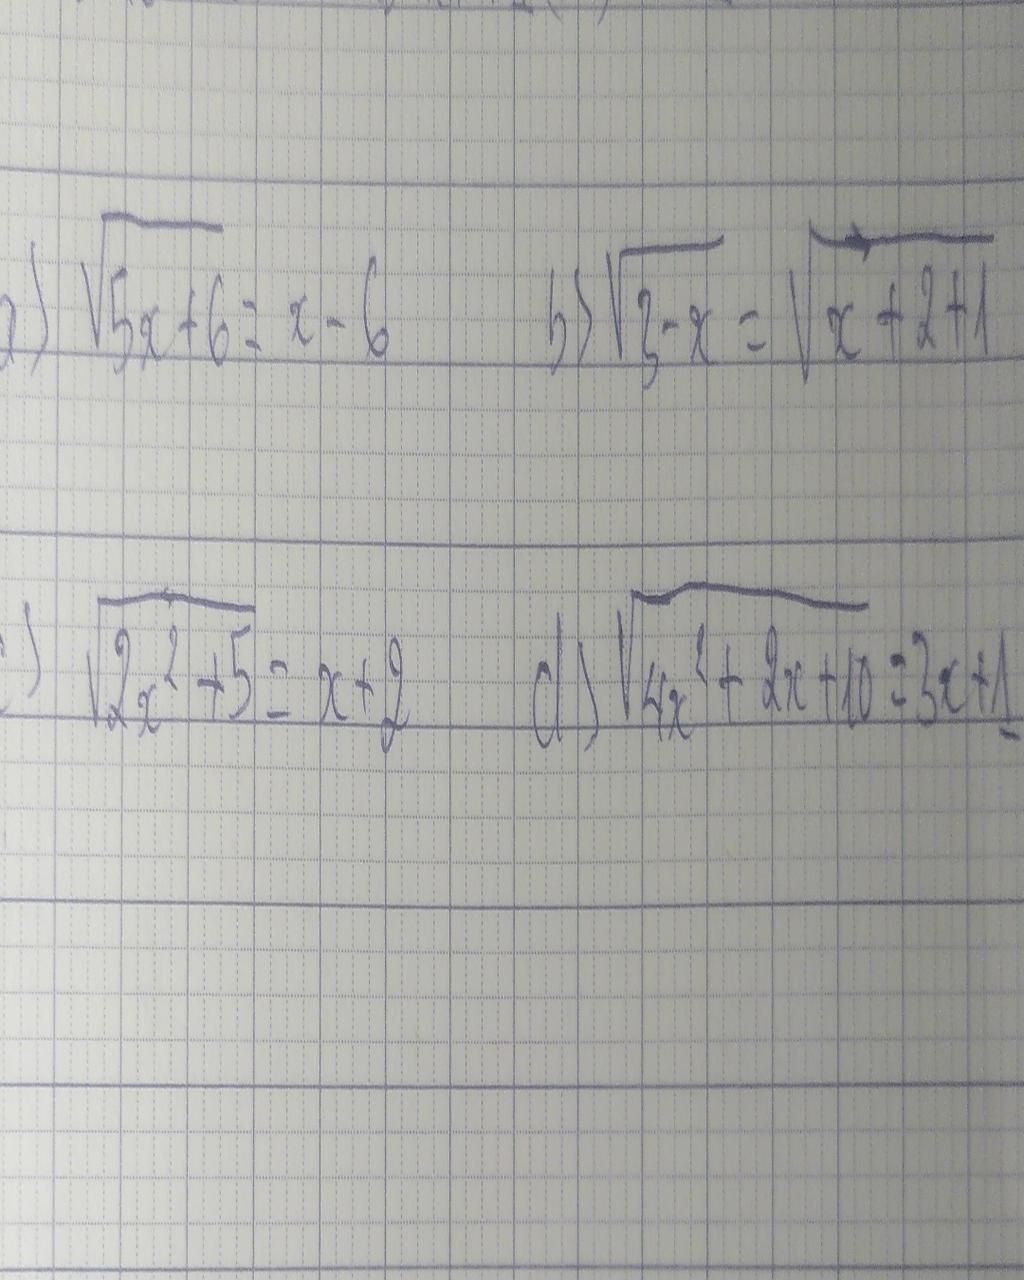 a) √5x+6 = x - 6 b) √3-x = √x+2+1
c) √2x²+5 = x+2 d) √4x²+2x+10 = 3x+1